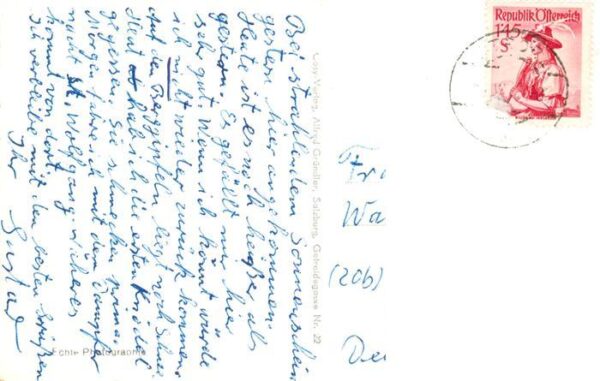 Bei strahlendem Sonnenschein
gestern hier angekommen.
Heute ist es noch heißer als
gestern. Es gefällt mir hier
sehr gut. Wenn ich könnt würde
ich nicht wieder zurück kommen
Auf den Berggipfeln liegt noch Schnee
dent hab ich die ersten Knödel
gegessen. Sie schmecken prima.
Morgen fahre ich mit dem Dampfer
nach St. Wolfgang. Näheres
kommt von dort.
Ich verbleibe mit den besten Grüßen
Ihr Gustav
Cosy-Verlag, Alfred Gründler, Salzburg, Getreidegasse Nr. 22
Echte Photographie
Republik Österreich
1·45 S
Fr
Wa
(20b)